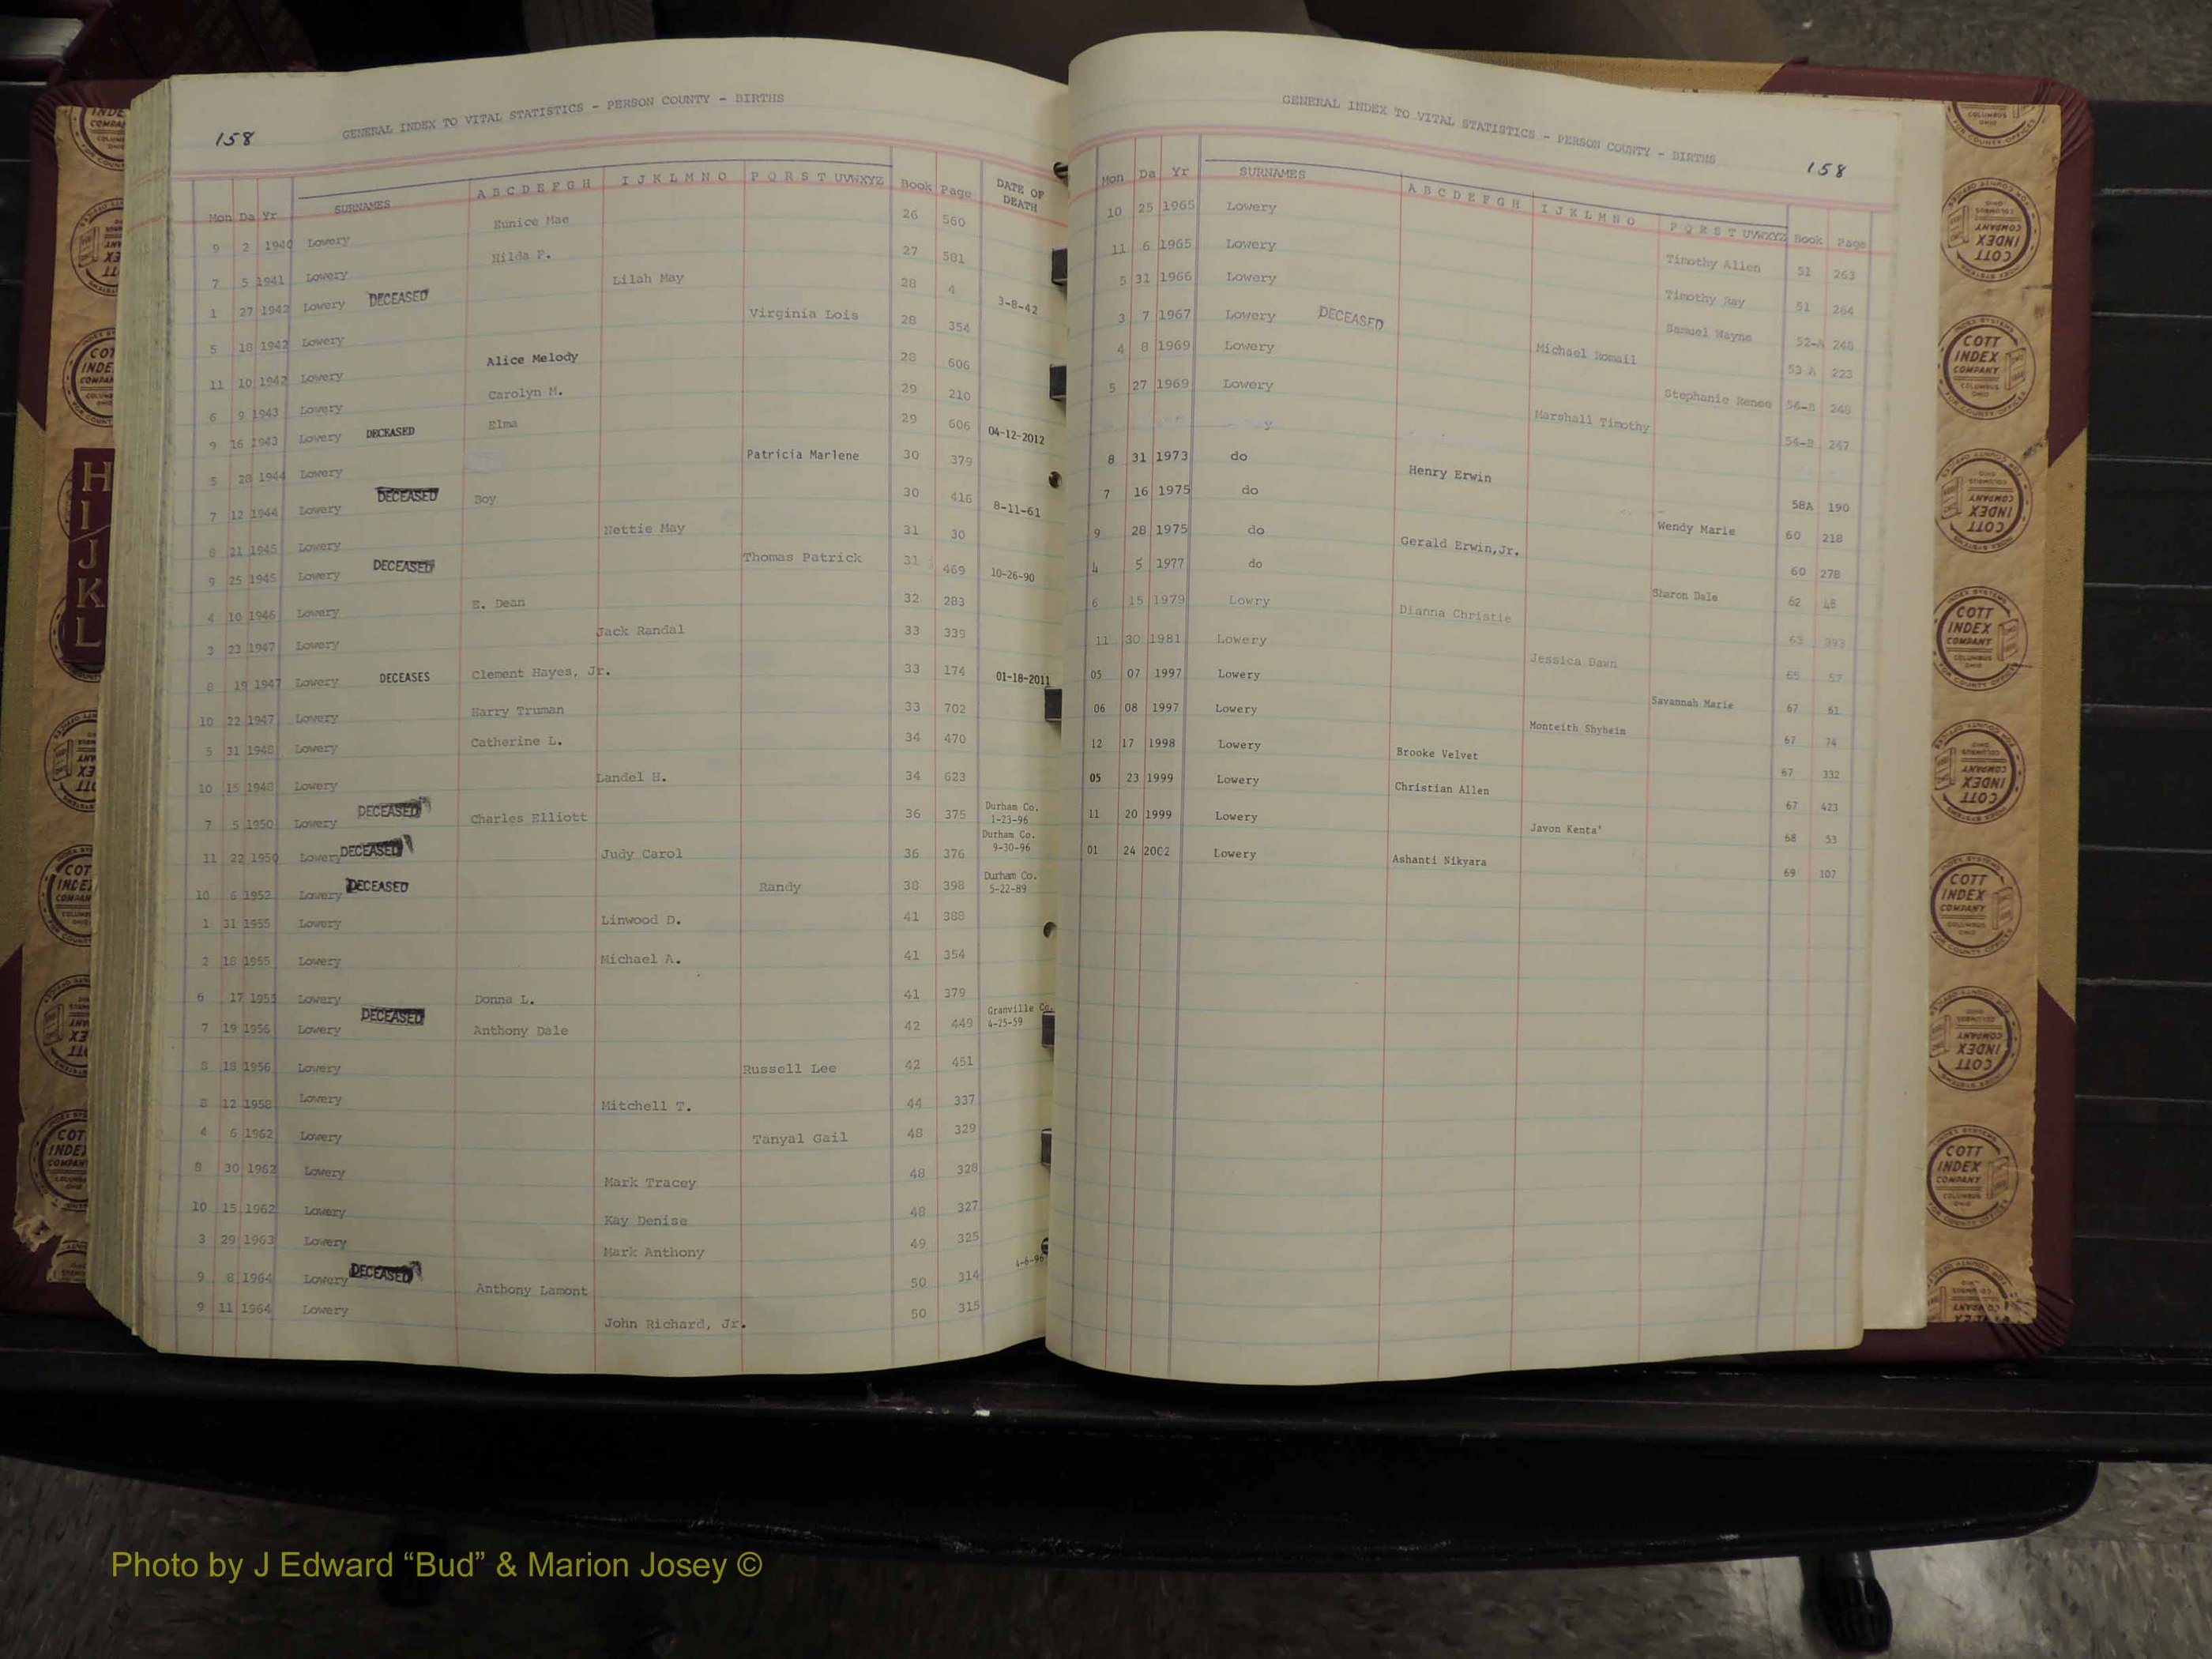 158
GENERAL INDEX TO VITAL STATISTICS - PERSON COUNTY - BIRTHS
Mon Da Yr SURNAMES A B C D E F G H I J K L M N O P Q R S T UVWXYZ Book Page DATE OF DEATH
9 2 1940 Lowery Eunice Mae 26 560
7 5 1941 Lowery Hilda P. 27 581
1 27 1942 Lowery DECEASED Lilah May 28 4 3-8-42
5 18 1942 Lowery Virginia Lois 28 354
11 10 1942 Lowery Alice Melody 28 606
6 9 1943 Lowery Carolyn M. 29 210
9 16 1943 Lowery DECEASED Elma 29 606 04-12-2012
5 28 1944 Lowery Patricia Marlene 30 379
7 12 1944 Lowery DECEASED Boy 30 416 8-11-61
8 21 1945 Lowery Nettie May 31 30
9 25 1945 Lowery DECEASED Thomas Patrick 31 469 10-26-90
4 10 1946 Lowery E. Dean 32 283
3 23 1947 Lowery Jack Randal 33 339
8 19 1947 Lowery DECEASES Clement Hayes, Jr. 33 174 01-18-2011
10 22 1947 Lowery Harry Truman 33 702
5 31 1948 Lowery Catherine L. 34 470
10 15 1948 Lowery Landel H. 34 623
7 5 1950 Lowery DECEASED Charles Elliott 36 375 Durham Co. 1-23-96
11 22 1950 Lowery DECEASED Judy Carol 36 376 Durham Co. 9-30-96
10 6 1952 Lowery DECEASED Randy 38 398 Durham Co. 5-22-89
1 31 1955 Lowery Linwood D. 41 388
2 18 1955 Lowery Michael A. 41 354
6 17 1955 Lowery Donna L. 41 379
7 19 1956 Lowery DECEASED Anthony Dale 42 449 Granville Co. 4-25-59
8 18 1956 Lowery Russell Lee 42 451
8 12 1958 Lowery Mitchell T. 44 337
4 6 1962 Lowery Tanyal Gail 48 329
8 30 1962 Lowery Mark Tracey 48 328
10 15 1962 Lowery Kay Denise 48 327
3 29 1963 Lowery Mark Anthony 49 325
9 8 1964 Lowery DECEASED Anthony Lamont 50 314 4-6-96
9 11 1964 Lowery John Richard, Jr. 50 315
GENERAL INDEX TO VITAL STATISTICS - PERSON COUNTY - BIRTHS
158
Mon Da Yr SURNAMES A B C D E F G H I J K L M N O P Q R S T UVWXYZ Book Page
10 25 1965 Lowery Timothy Allen 51 263
11 6 1965 Lowery Timothy Ray 51 264
5 31 1966 Lowery Samuel Wayne 52-A 248
3 7 1967 Lowery DECEASED Michael Romail 53 A 223
4 8 1969 Lowery Stephanie Renee 54-B 248
5 27 1969 Lowery Marshall Timothy 54-B 247
8 31 1973 do Henry Erwin 58A 190
7 16 1975 do Wendy Marie 60 218
9 28 1975 do Gerald Erwin,Jr. 60 278
4 5 1977 do Sharon Dale 62 48
6 15 1979 Lowry Dianna Christie 63 393
11 30 1981 Lowery Jessica Dawn 65 57
05 07 1997 Lowery Savannah Marie 67 61
06 08 1997 Lowery Monteith Shyheim 67 74
12 17 1998 Lowery Brooke Velvet 67 332
05 23 1999 Lowery Christian Allen 67 423
11 20 1999 Lowery Javon Kenta' 68 53
01 24 2002 Lowery Ashanti Nikyara 69 107
H
I
J
K
L
COTT INDEX COMPANY COLUMBUS OHIO
Photo by J Edward “Bud” & Marion Josey ©